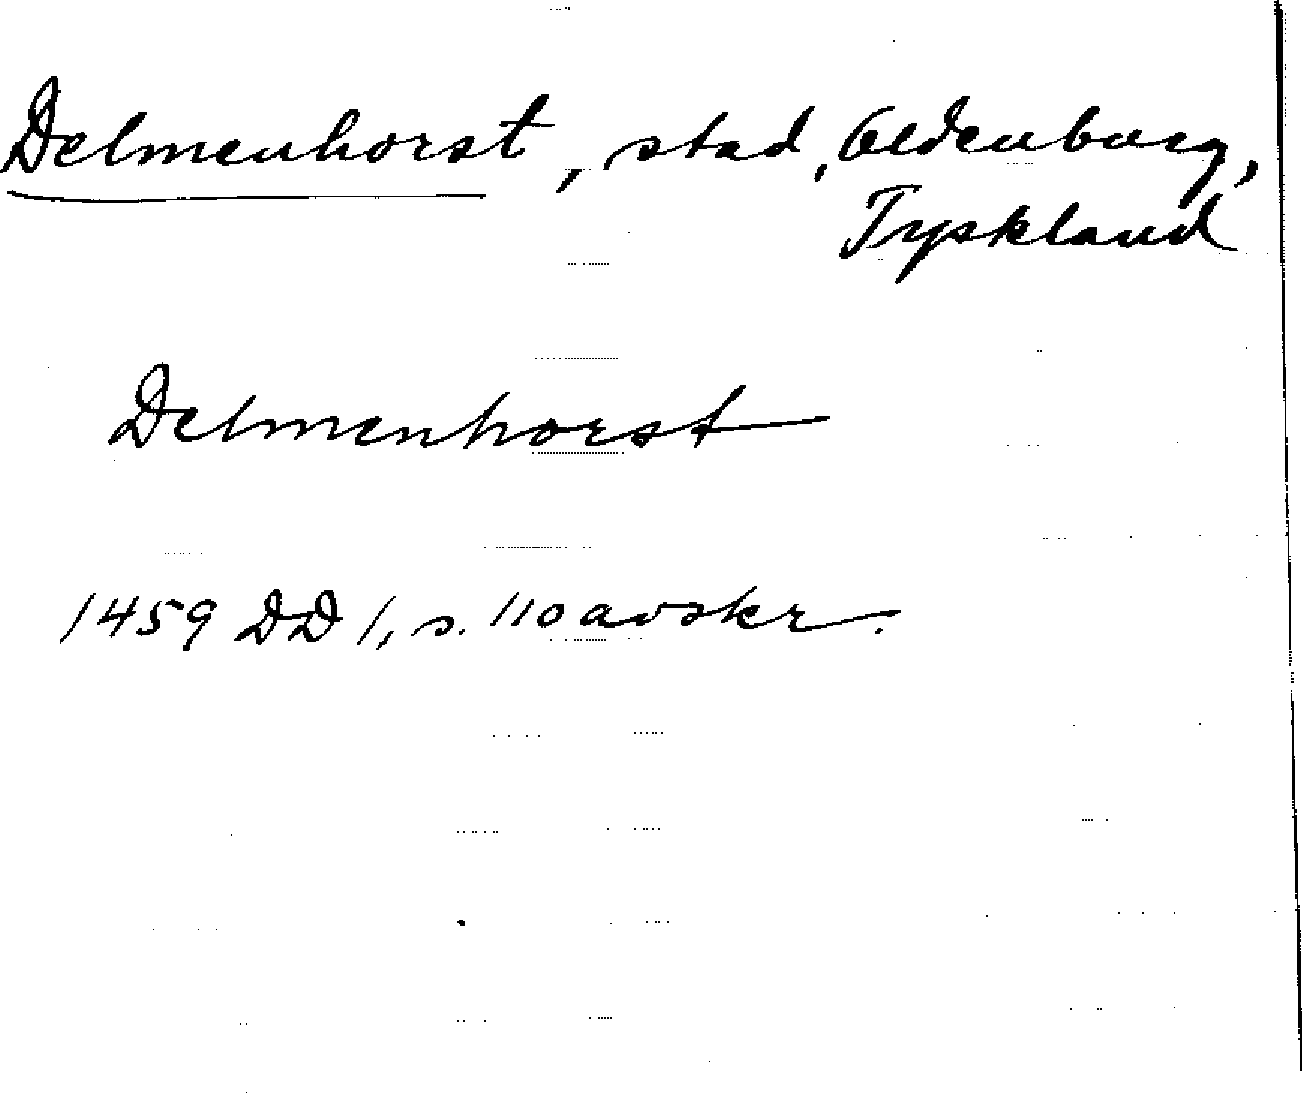 Delmenhorst, stad, Oldenburg,
Tyskland
Delmenhorst
1459 DD 1, s. 110 avskr.